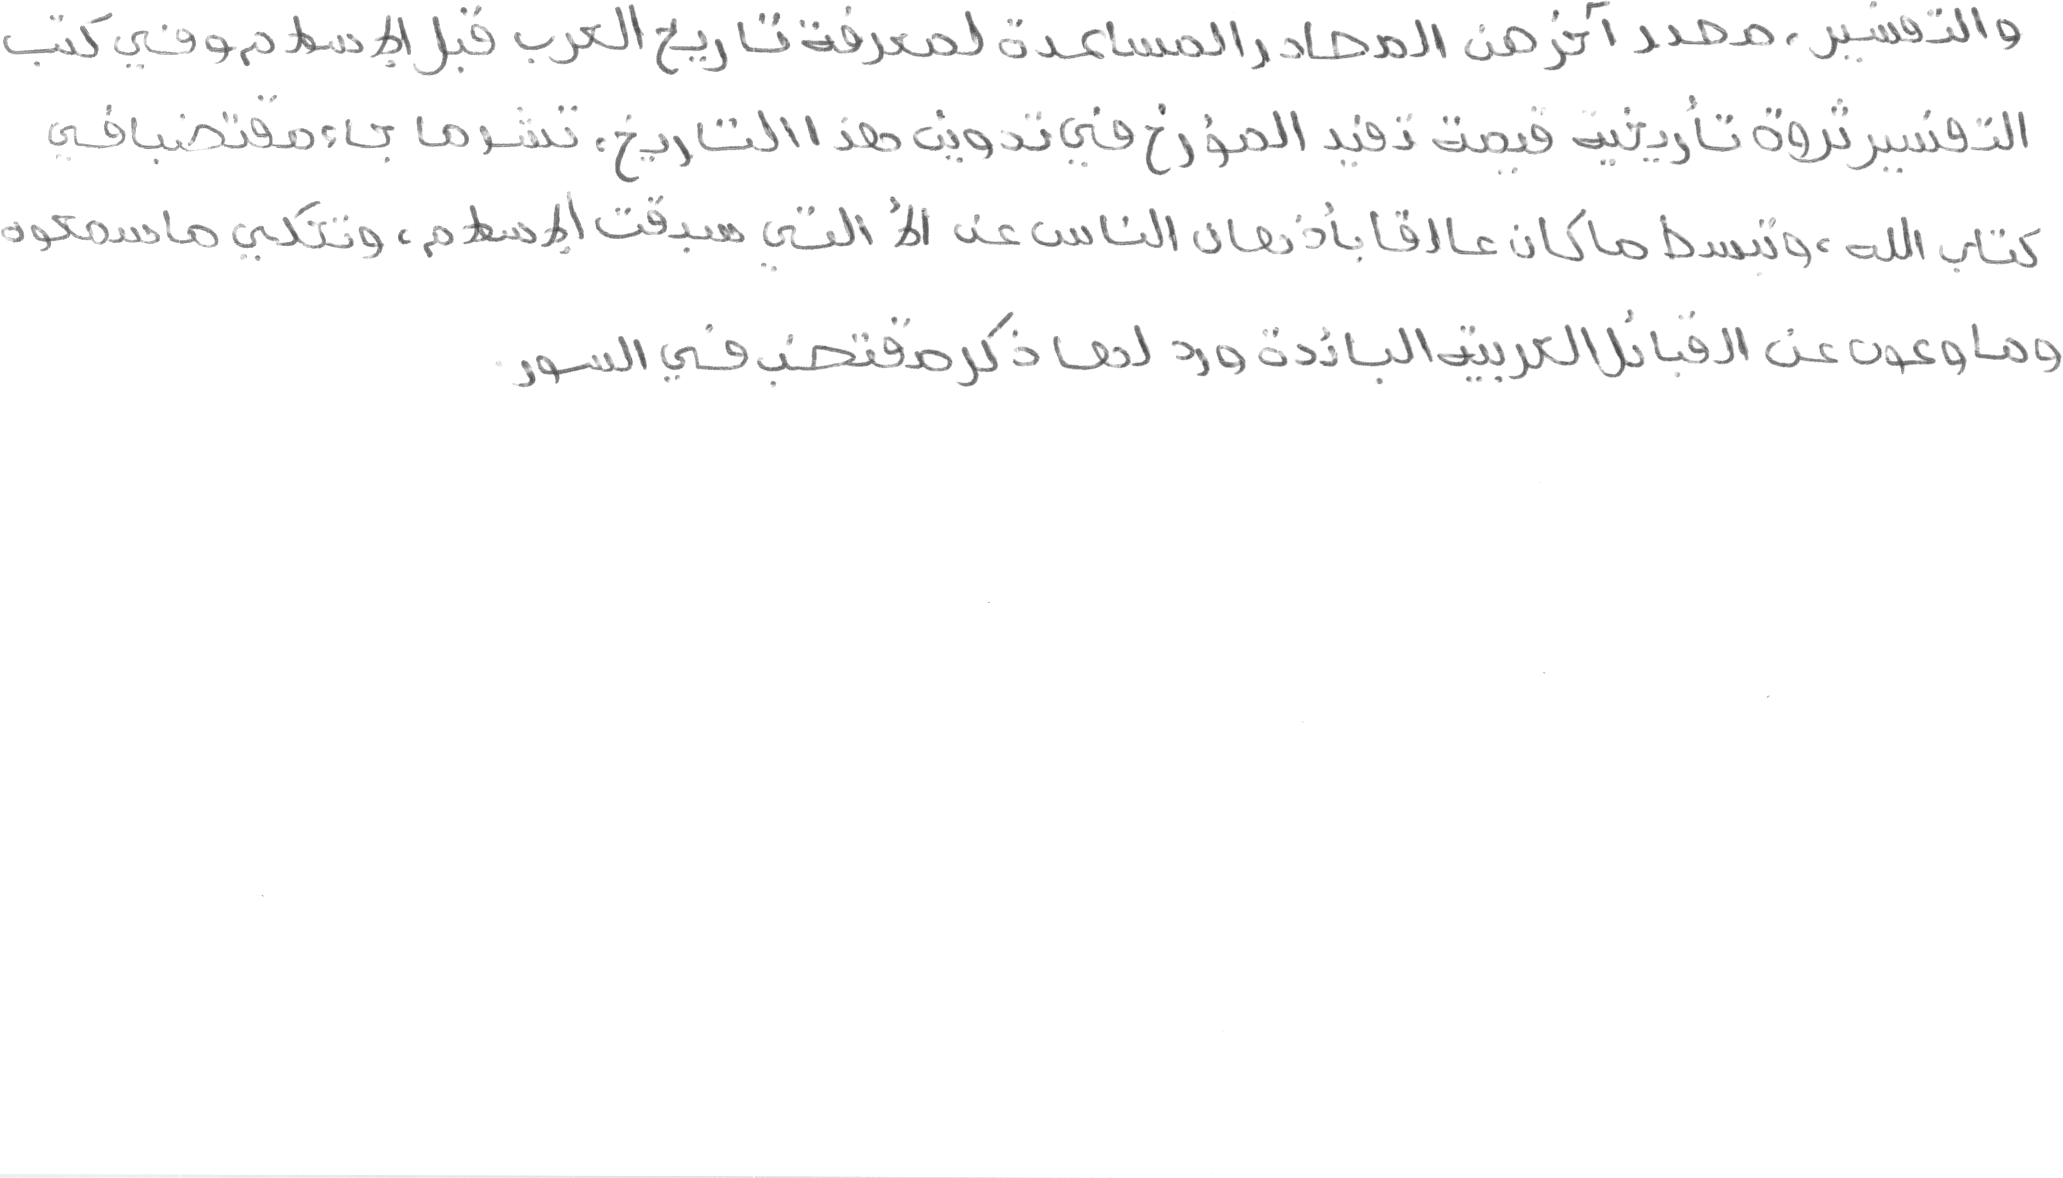 والتفسير، مصدر آخر من المصادر المساعدة لمعرفة تاريخ العرب قبل الإسلام وفي كتب
التفسير ثروة تأريخية قيمة تفيد المؤرخ في تدوين هذا التاريخ، تشرح ما جاء مقتضبا في
كتاب الله، وتبسط ما كان عالقا بأذهان الناس عن الأ التي سبقت الإسلام، وتحكي ما سمعوه
وما وعوه عن القبائل العربية البائدة ورد لها ذكر مقتضب في السور